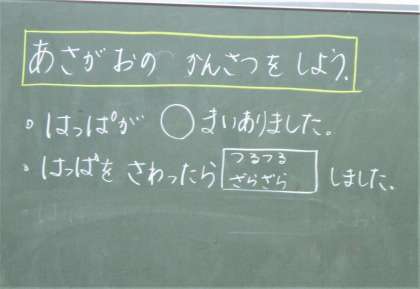 あさがおの かんさつを しよう。
。はっぱが ◯まいありました。
。はっぱを さわったら つるつる ざらざら しました。